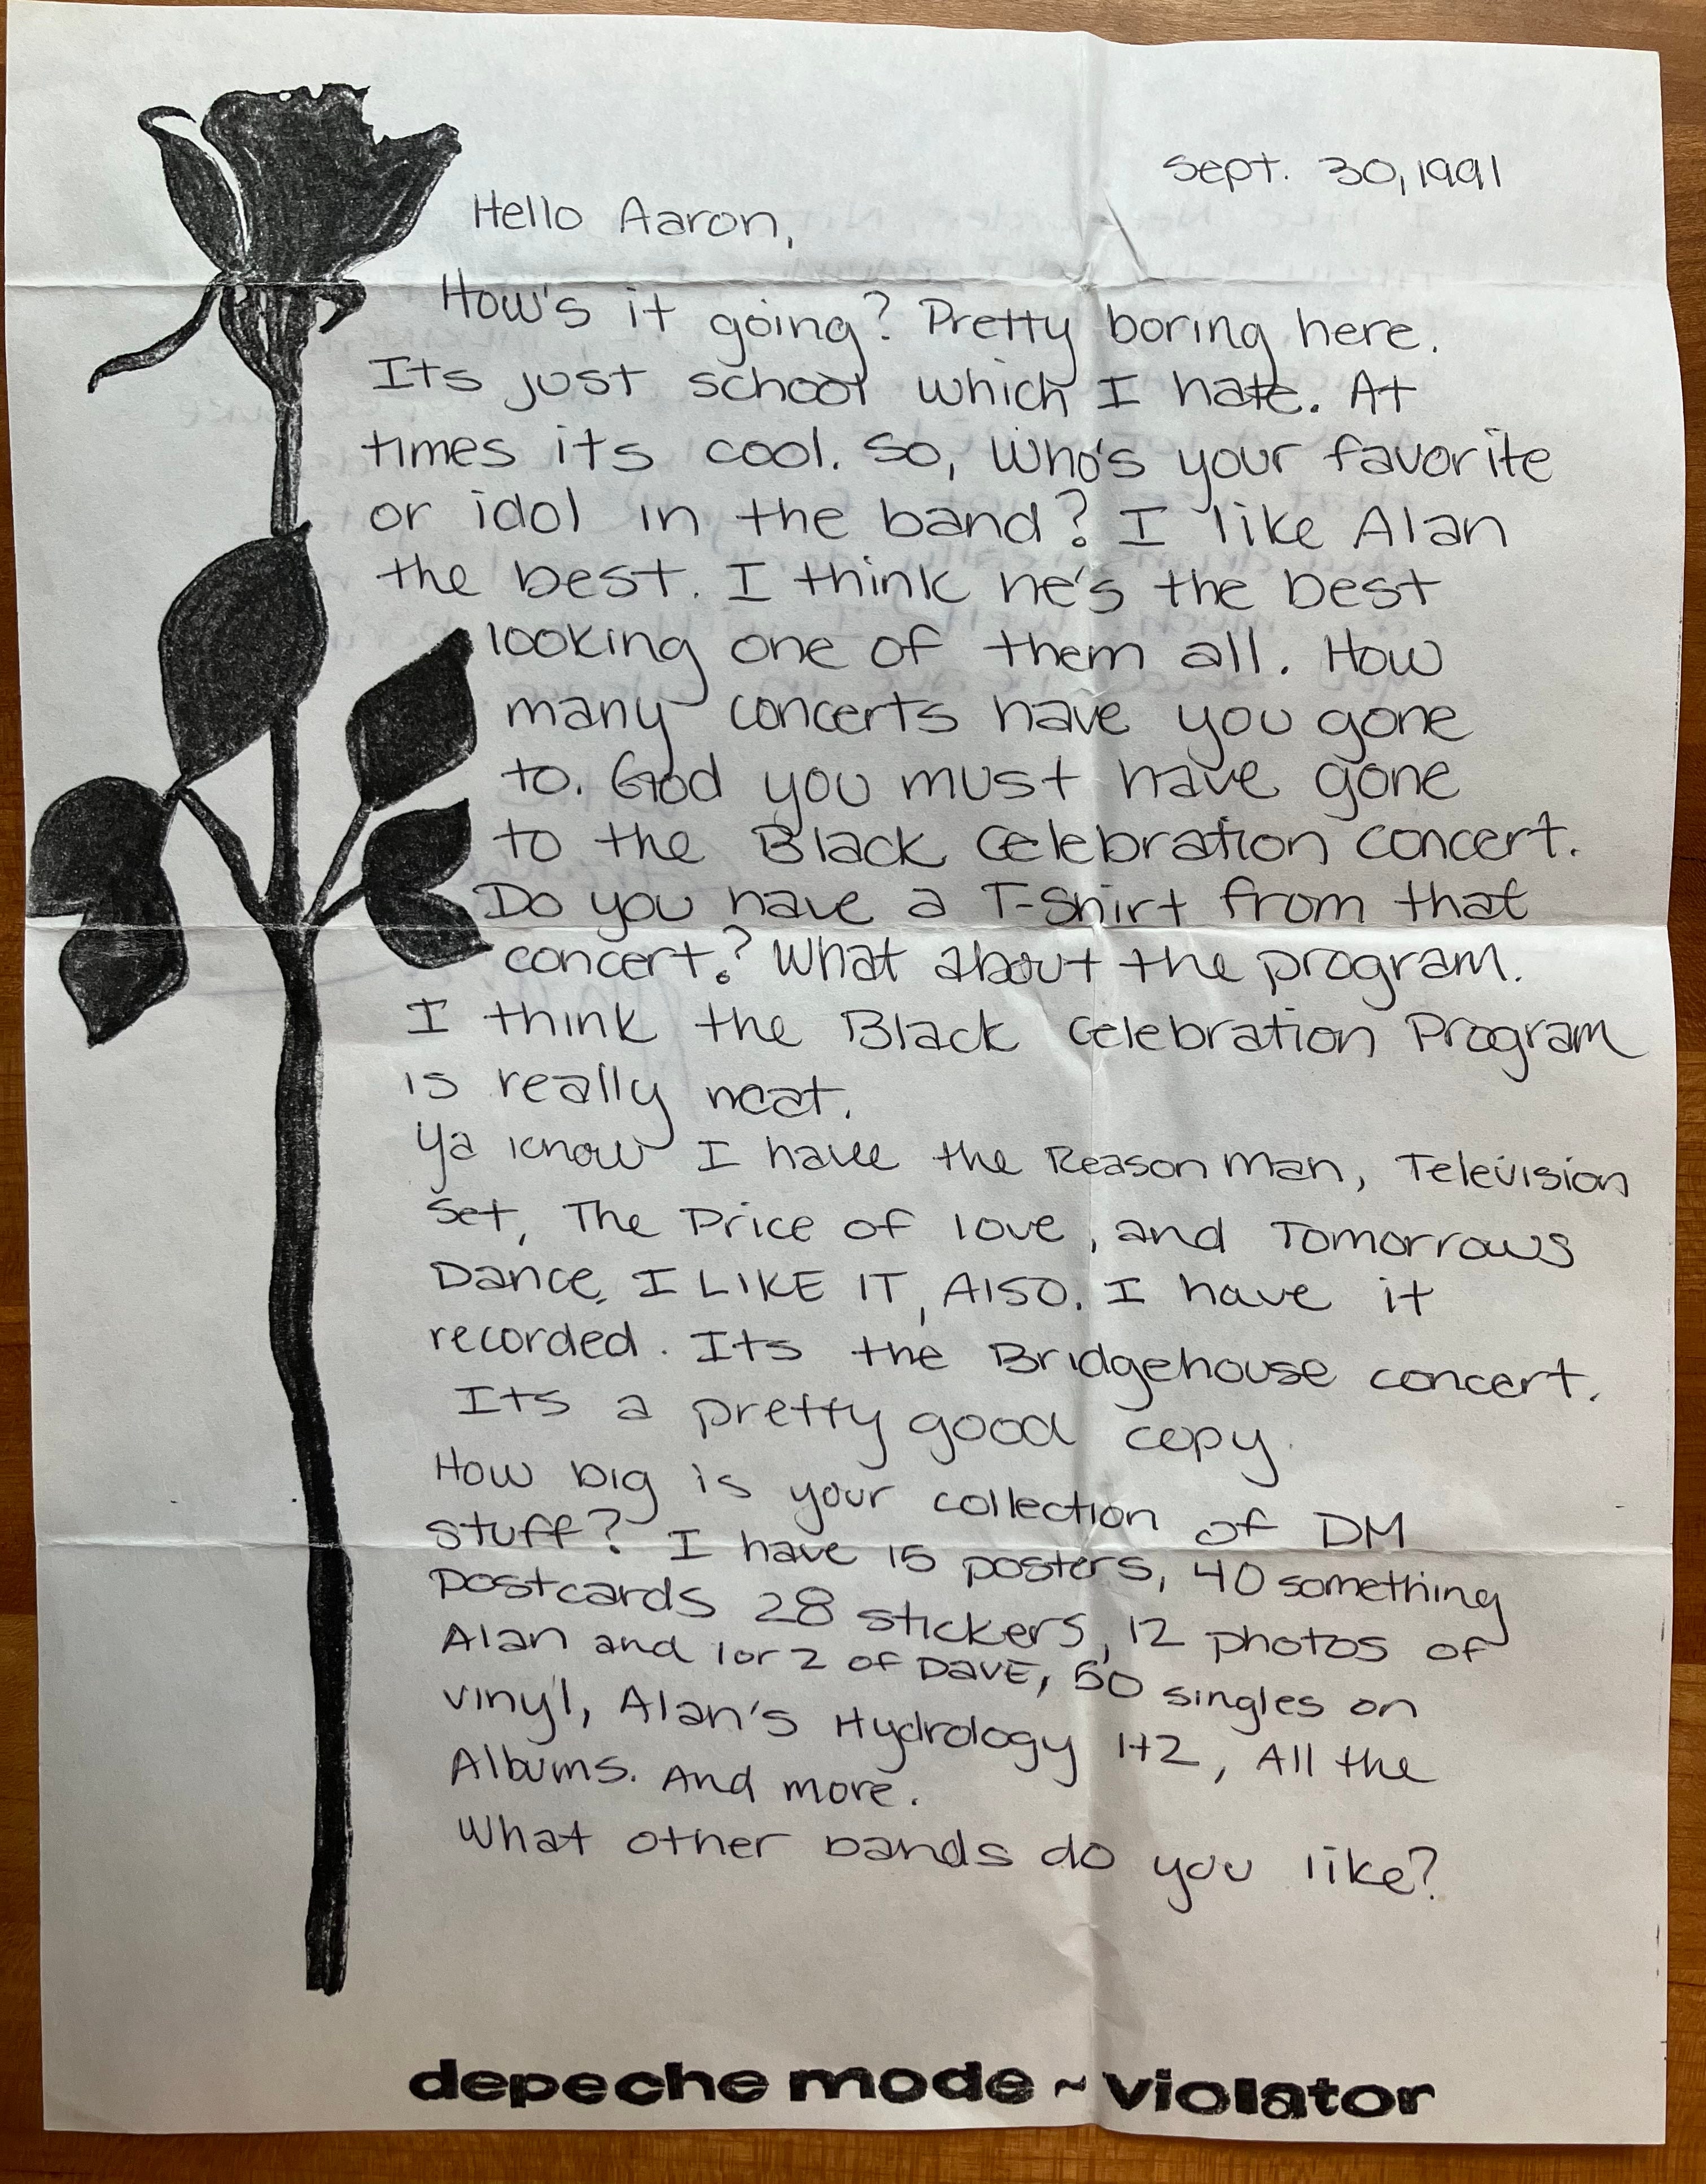 Sept. 30, 1991
Hello Aaron,
How's it going? Pretty boring here.
Its just school which I hate. At
times its cool. So, Who's your favorite
or idol in the band? I like Alan
the best. I think he's the best
looking one of them all. How
many concerts have you gone
to. God you must have gone
to the Black Celebration concert.
Do you have a T-Shirt from that
concert.? What about the program.
I think the Black Celebration Program
is really neat.
Ya know I have the Reason Man, Television
Set, The Price of love, and Tomorrows
Dance. I LIKE IT, AlSO. I have it
recorded. Its the Bridgehouse concert.
Its a pretty good copy.
How big is your collection of DM
stuff? I have 15 posters, 40 something
Postcards 28 stickers, 12 photos of
Alan and 1 or 2 of DAVE, 50 singles on
vinyl, Alan's Hydrology 1+2, All the
Albums. And more.
What other bands do you like?
depeche mode ~ violator